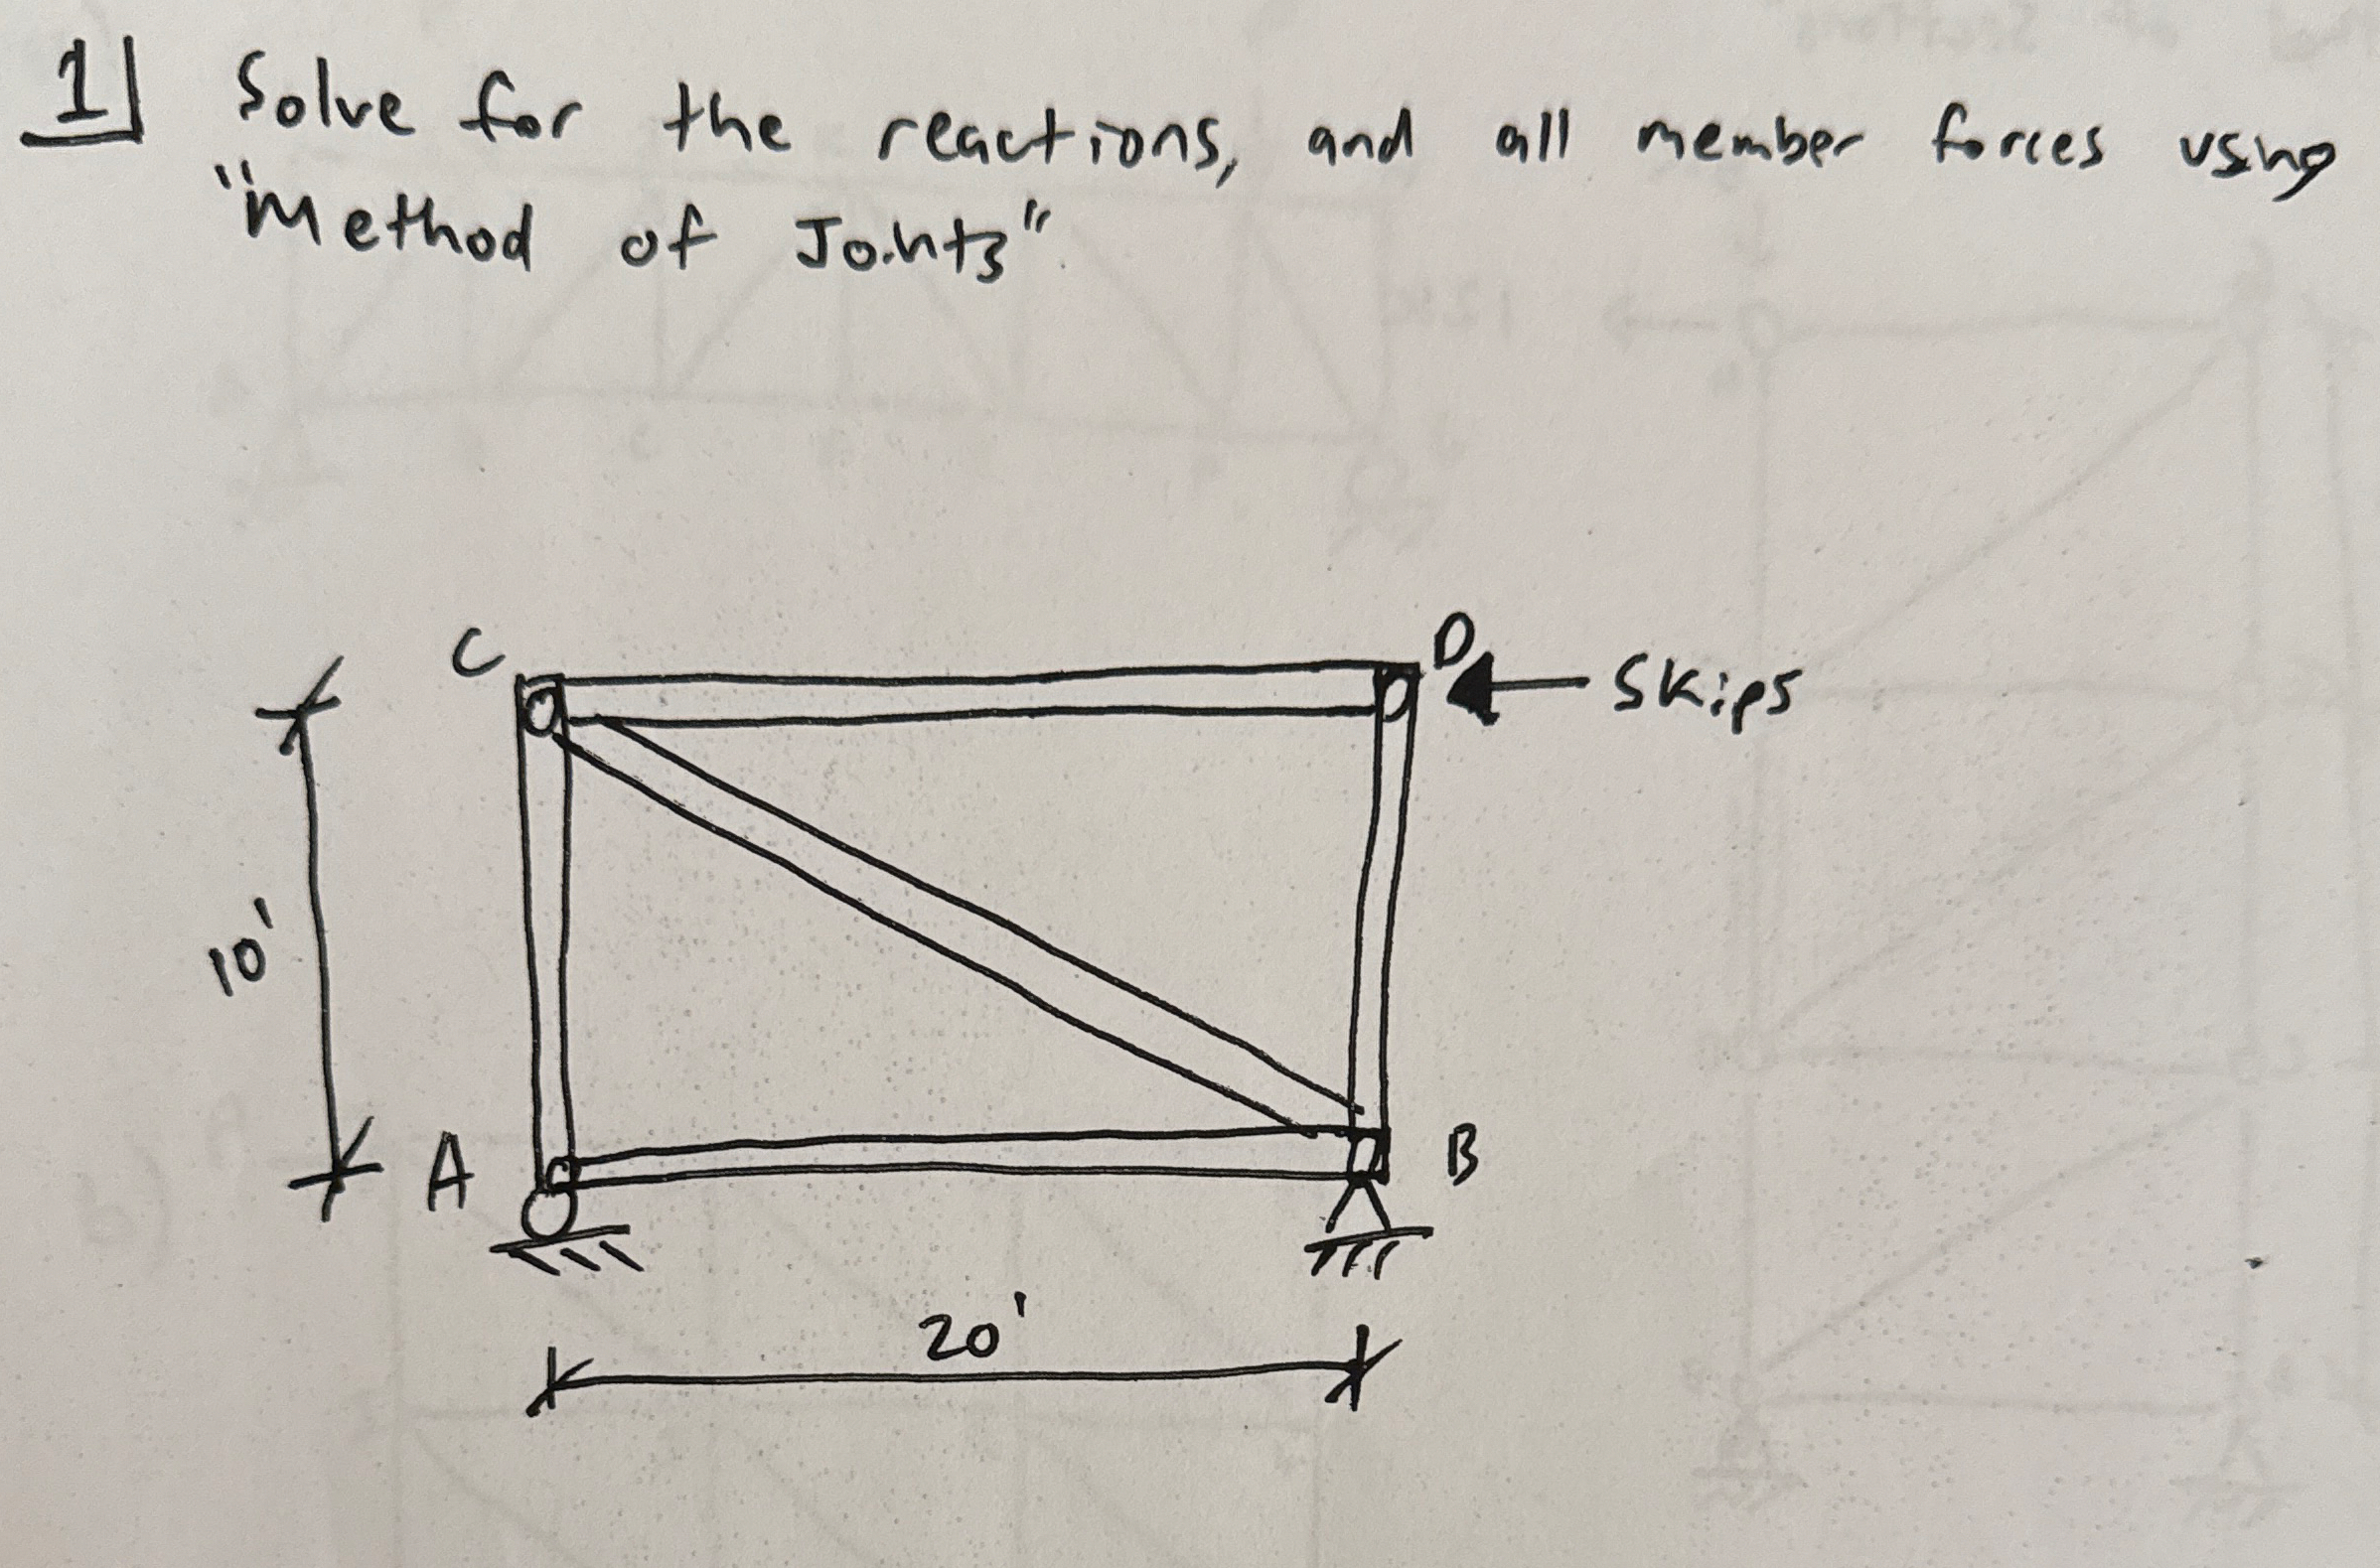 1 Solve for the reactions, and all member forces using
"Method of Joints"
C
D
5kips
10'
A
B
20'